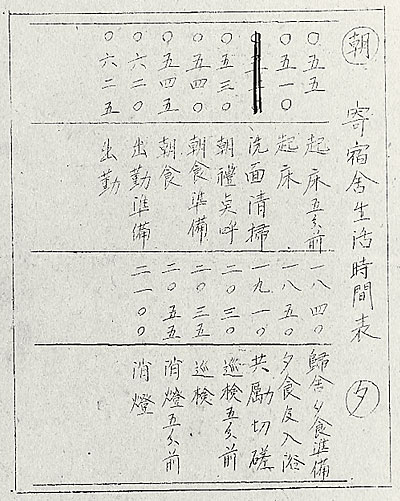 朝 寄宿舍生活時間表 夕
〇五五
〇五一〇
〇五三〇
〇五四〇
〇五四五
〇六二〇
〇六二五
起床五分前
起床
洗面清掃
朝禮奌呼
朝食準備
朝食
出勤準備
出勤
一八四〇
一八五〇
一九一〇
二〇三〇
二〇三五
二〇五五
二一〇〇
歸舍夕食準備
夕食及入浴
共勵切磋
巡検五分前
巡検
消燈五分前
消燈